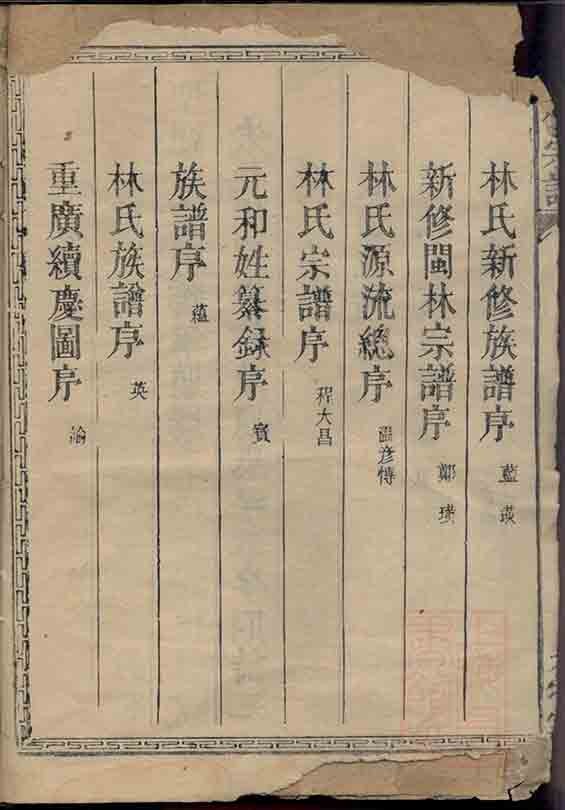 林氏新修族譜序 藍瑛
新修閩林宗譜序 鄭瑛
林氏源流總序 溫彥博
林氏宗譜序 程大昌
元和姓纂錄序 寶
族譜序 蘊
林氏族譜序 英
重廣續慶圖序 諭